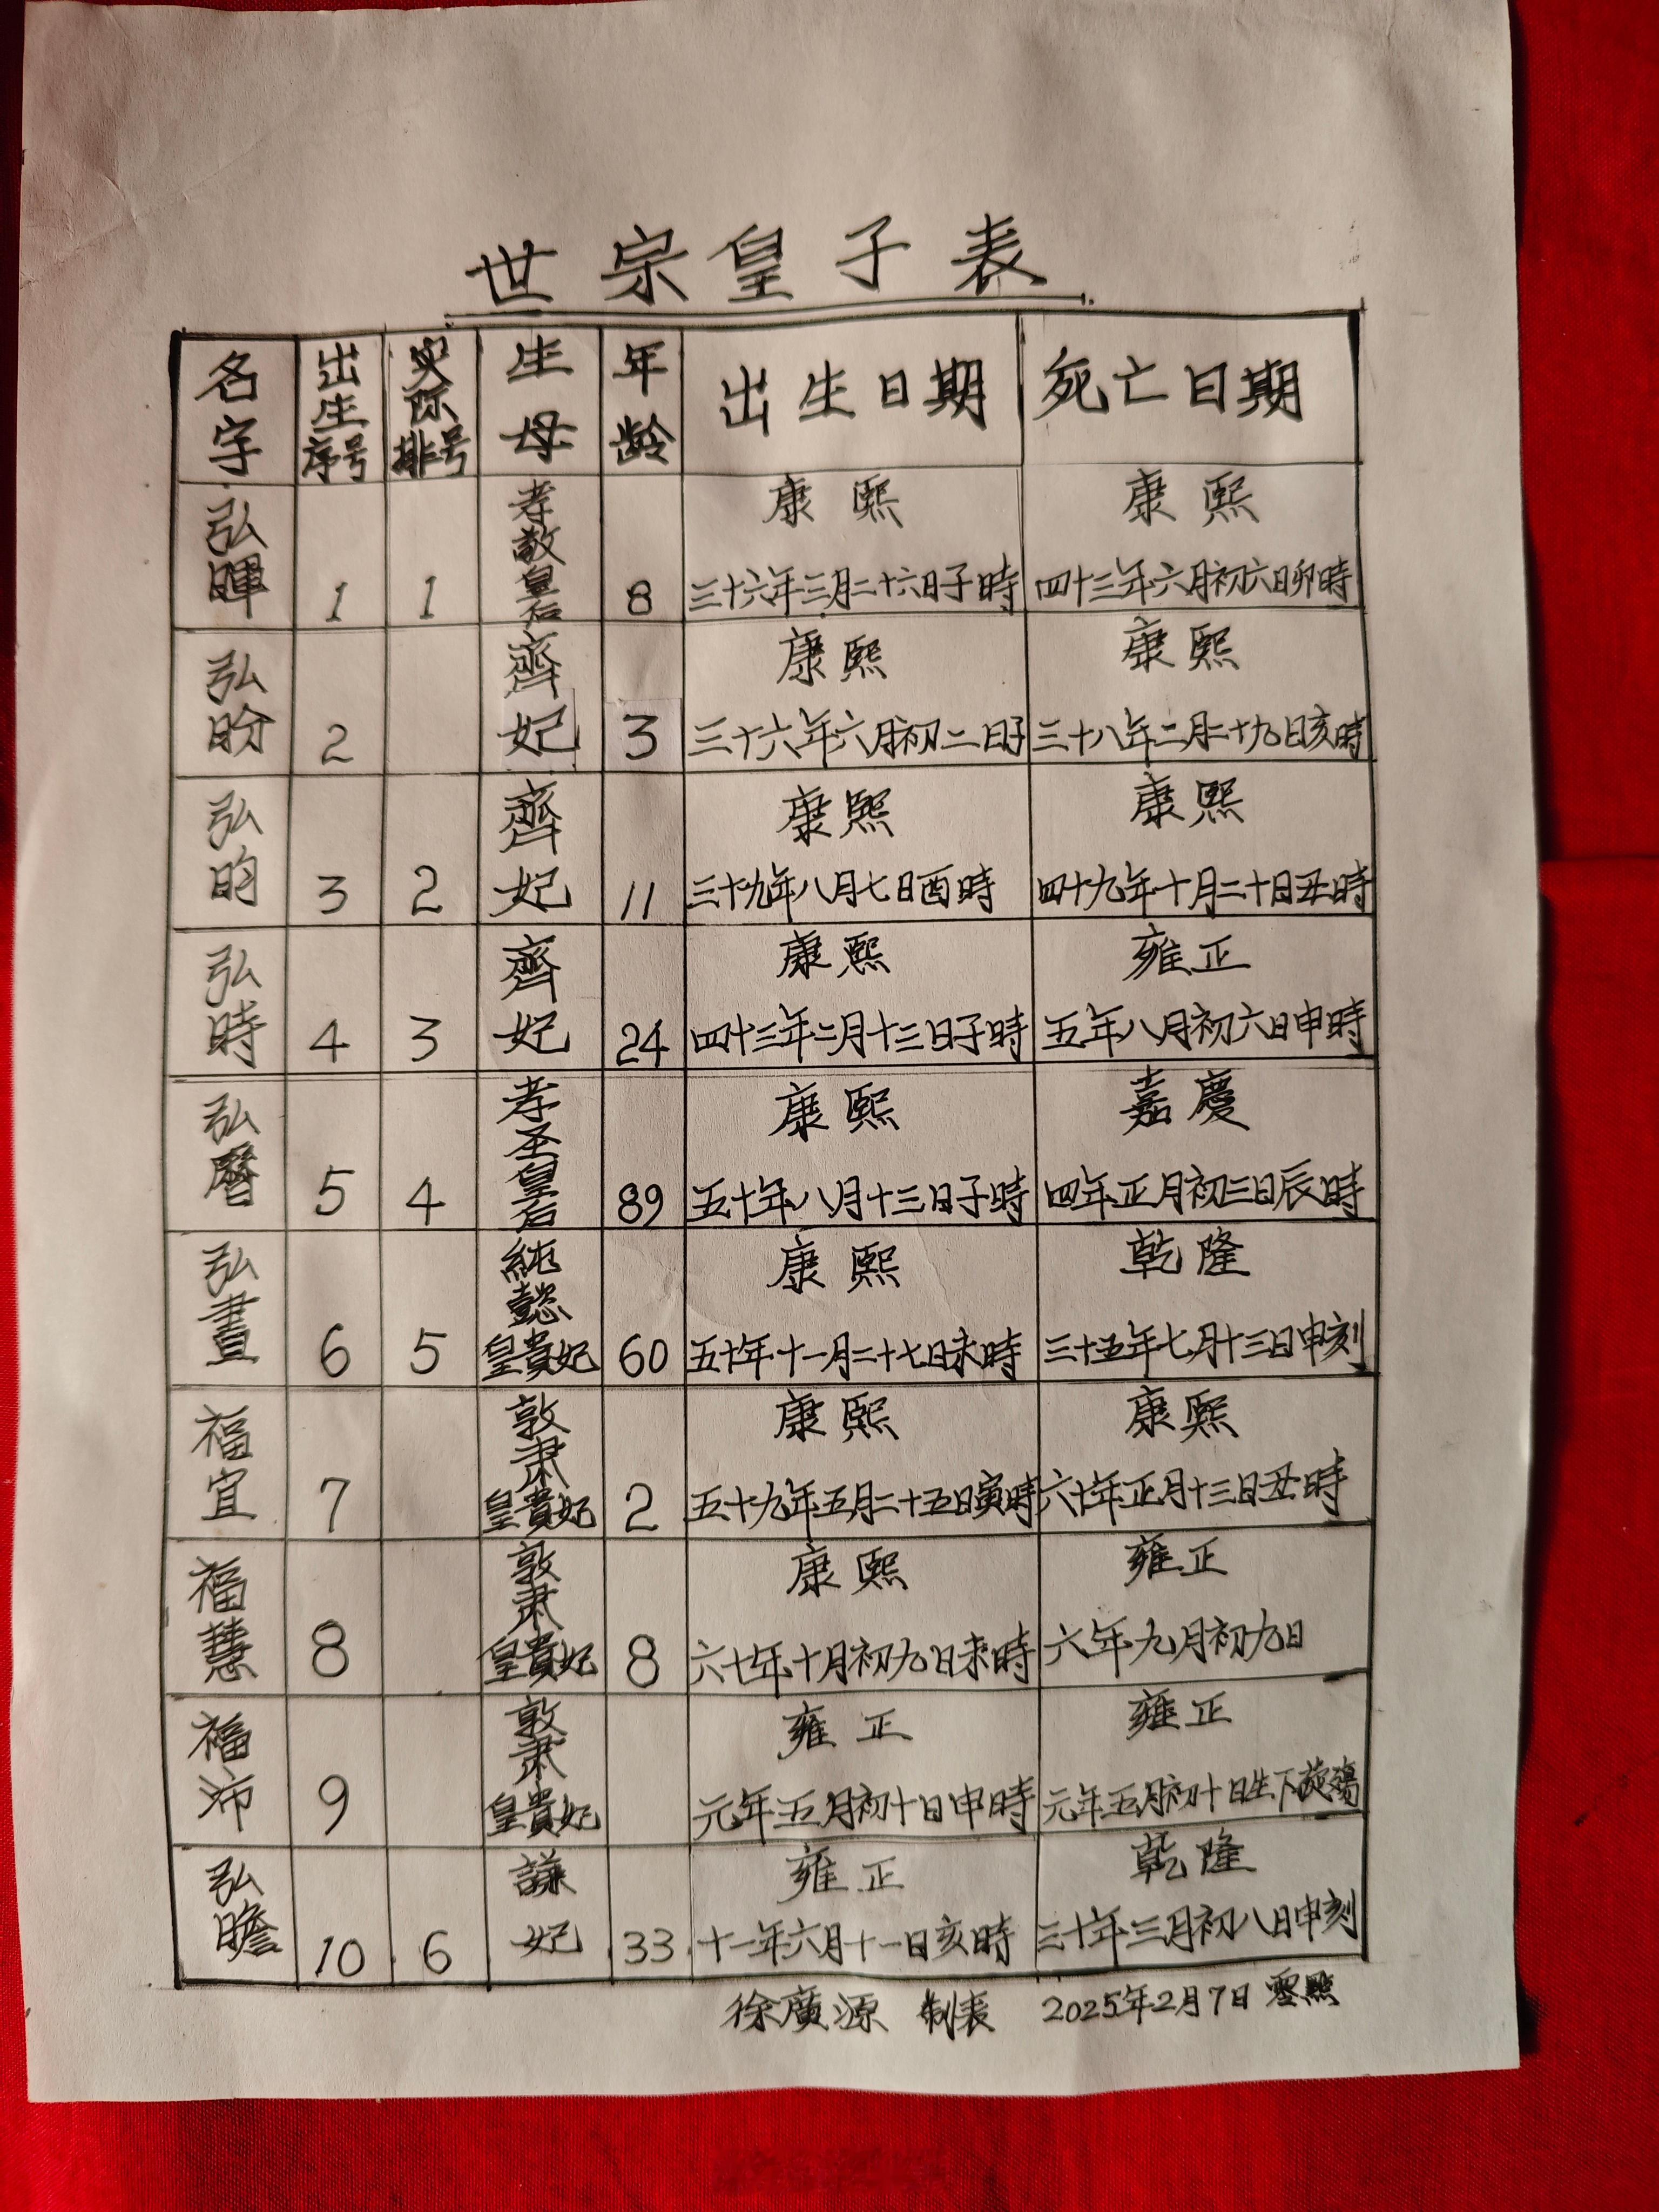 世宗皇子表
名字 出生序号 实际排号 生母 年龄 出生日期 死亡日期
弘暉 1 1 孝敬皇后 8 康熙三十六年三月二十六日子時 康熙四十三年六月初六日卯時
弘昐 2 齊妃 3 康熙三十六年六月初二日子 康熙三十八年二月二十九日亥時
弘昀 3 2 齊妃 11 康熙三十九年八月七日酉時 康熙四十九年十月二十日丑時
弘時 4 3 齊妃 24 康熙四十三年二月十三日子時 雍正五年八月初六日申時
弘曆 5 4 孝圣皇后 89 康熙五十年八月十三日子時 嘉慶四年正月初三日辰時
弘晝 6 5 純懿皇貴妃 60 康熙五十年十一月二十七日未時 乾隆三十五年七月十三日申刻
福宜 7 敦肃皇貴妃 2 康熙五十九年五月二十五日寅時 康熙六十年正月十三日丑時
福慧 8 敦肃皇貴妃 8 康熙六十年十月初九日未時 雍正六年九月初九日
福沛 9 敦肃皇貴妃 雍正元年五月初十日申時 雍正元年五月初十日生下旋殤
弘曕 10 6 謙妃 33 雍正十一年六月十一日亥時 乾隆三十年三月初八日申刻
徐廣源 制表 2025年2月7日 零點